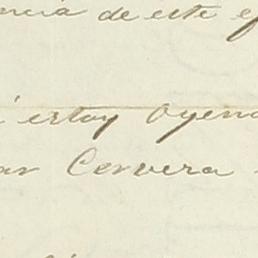 ncia de este e
i estoy oyen
ar Cervera